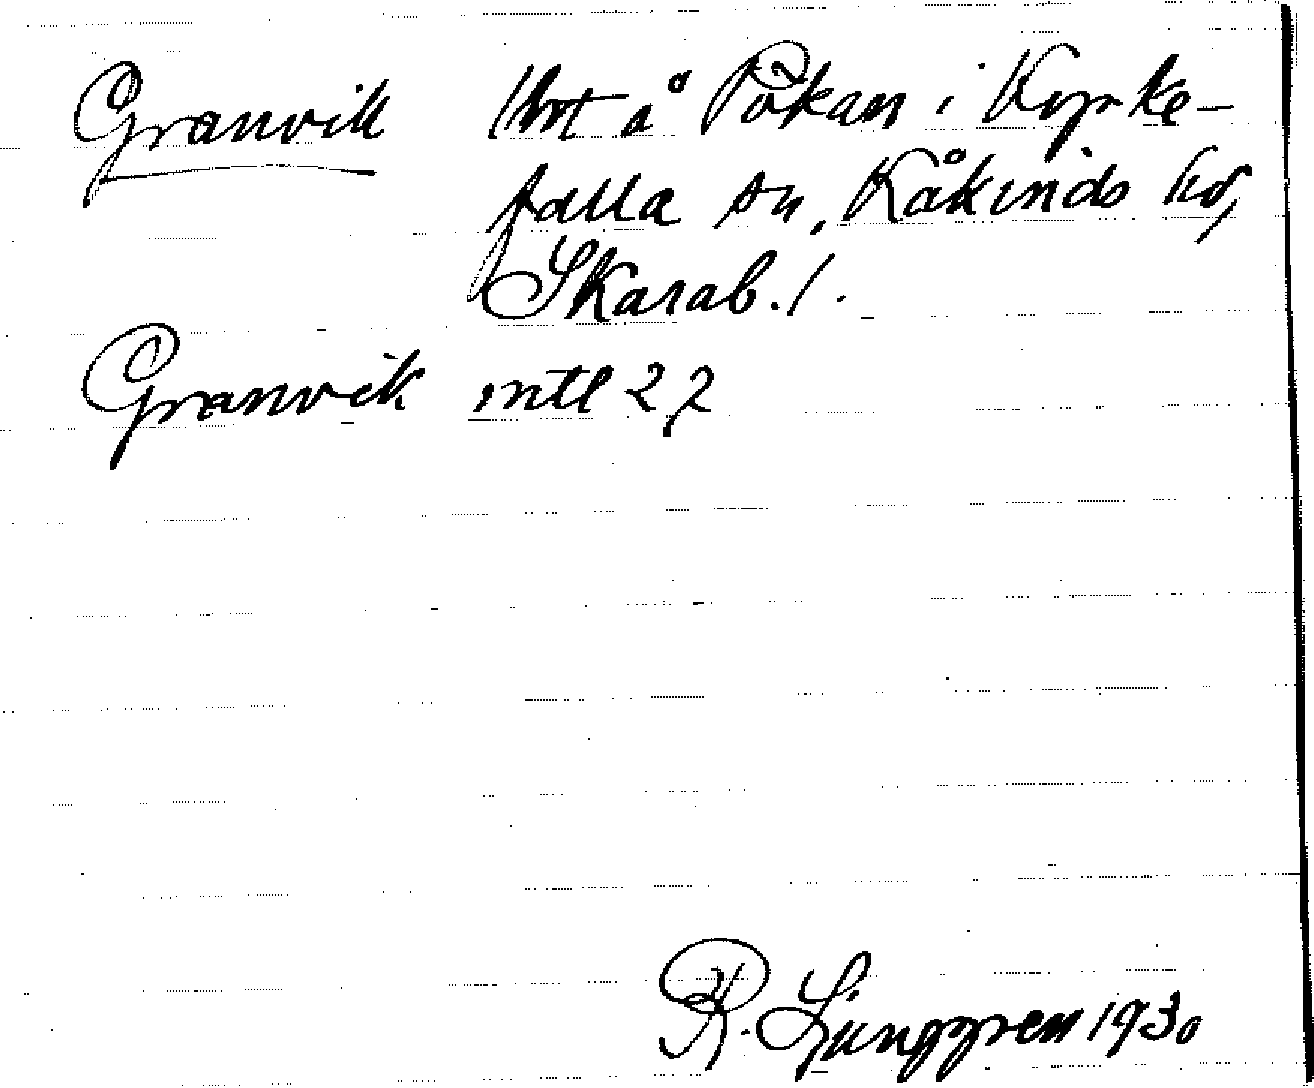 Granvik Tort å Påkan i Kyrke-
falla sn, Kåkinds hd,
Skarab. l.
Granvik mtl 2,2
R. Ljunggren 1930